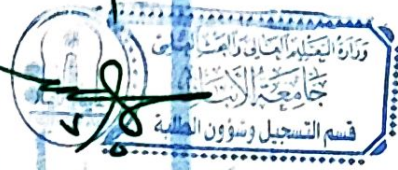 وزارة التعليم العالي والبحث العلمي
جامعة الأنبار
قسم التسجيل وشؤون الطلبة